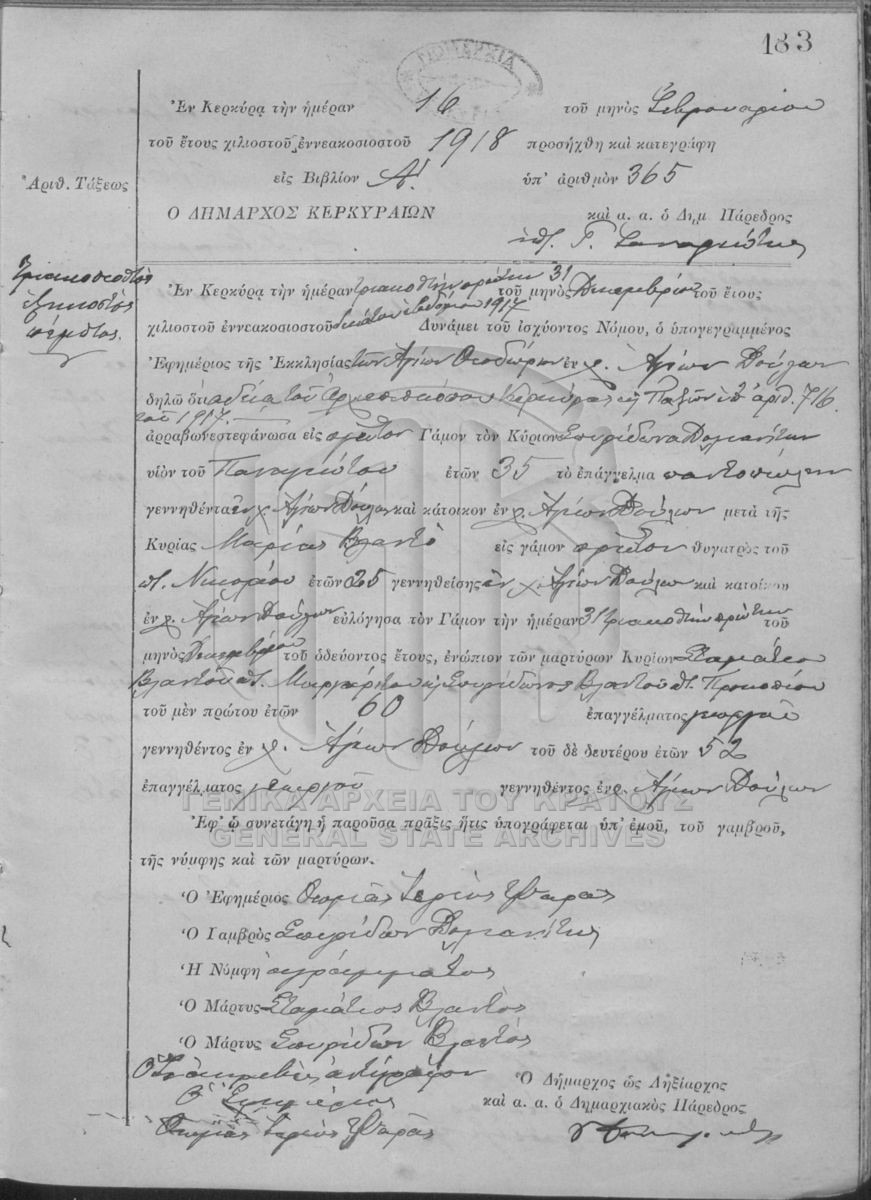 183
Ἐν Κερκύρᾳ τὴν ἡμέραν 16 τοῦ μηνὸς Φεβρουαρίου
τοῦ ἔτους χιλιοστοῦ ἐννεακοσιοστοῦ 1918 προσήχθη καὶ κατεγράφη
Ἀριθ. Τάξεως
εἰς Βιβλίον Α! ὑπ' ἀριθμὸν 365
Ο ΔΗΜΑΡΧΟΣ ΚΕΡΚΥΡΑΙΩΝ καὶ α. α. ὁ Δημ Πάρεδρος
τριακοσιοστὸς
ἑξηκοστὸς
πέμπτος
Ἐν Κερκύρᾳ τὴν ἡμέραν τριακοστὴν πρώτην 31 τοῦ μηνὸς Δεκεμβρίου τοῦ ἔτους
χιλιοστοῦ ἐννεακοσιοστοῦ δεκάτου ἑβδόμου 1917 Δυνάμει τοῦ ἰσχύοντος Νόμου, ὁ ὑπογεγραμμένος
Ἐφημέριος τῆς Ἐκκλησίας τῶν Ἁγίων Θεοδώρων ἐν χ. Ἁγίων Δούλων
δηλῶ ὅτι ἀδείᾳ τοῦ Ἀρχιεπισκόπου Κερκύρας κ Παξῶν ὑπ' ἀριθ. 716
τοῦ 1917.
ἀρραβωνεστεφάνωσα εἰς πρῶτον Γάμον τὸν Κύριον Σπυρίδωνα Δολιανίτην
υἱὸν τοῦ Παναγιώτου ἐτῶν 35 τὸ ἐπάγγελμα παντοπώλην
γεννηθέντα ἐν χ. Ἁγίων Δούλων καὶ κάτοικον ἐν χ. Ἁγίων Δούλων μετὰ τῆς
Κυρίας Μαρίας Βλαντὸ εἰς γάμον πρῶτον θυγατρὸς τοῦ
ποτ. Νικολάου ἐτῶν 25 γεννηθείσης ἐν χ. Ἁγίων Δούλων καὶ κατοίκου
ἐν χ. Ἁγίων Δούλων εὐλόγησα τὸν Γάμον τὴν ἡμέραν 31 τριακοστὴν πρώτην τοῦ
μηνὸς Δεκεμβρίου τοῦ ὁδεύοντος ἔτους, ἐνώπιον τῶν μαρτύρων Κυρίων Σταμάτιο
Βλαντοῦ ποτ. Μαργαρίτου κ Σπυρίδωνος Βλαντοῦ ποτ. Προκοπίου
τοῦ μὲν πρώτου ἐτῶν 60 ἐπαγγέλματος γεωργοῦ
γεννηθέντος ἐν χ. Ἁγίων Δούλων τοῦ δὲ δευτέρου ἐτῶν 52
ἐπαγγέλματος γεωργοῦ γεννηθέντος ἐν χ. Ἁγίων Δούλων
ΓΕΝΙΚΑ ΑΡΧΕΙΑ ΤΟΥ ΚΡΑΤΟΥΣ
Ἐφ' ᾧ συνετάγη ἡ παροῦσα πρᾶξις ἥτις ὑπογράφεται ὑπ' ἐμοῦ, τοῦ γαμβροῦ,
GENERAL STATE ARCHIVES
τῆς νύμφης καὶ τῶν μαρτύρων.
Ὁ Ἐφημέριος Θωμᾶς Ἱερεὺς Ψαρᾶς
Ὁ Γαμβρὸς Σπυρίδων Δολιανίτης
Ἡ Νύμφη ἀγράμματος
Ὁ Μάρτυς Σταμάτιος Βλαντὸς
Ὁ Μάρτυς Σπυρίδων Βλαντὸς
ἀντίγραφον
Ὁ Ἐφημέριος
Θωμᾶς Ἱερεὺς Ψαρᾶς
Ὁ Δήμαρχος ὡς Ληξίαρχος
καὶ α. α. ὁ Δημαρχιακὸς Πάρεδρος